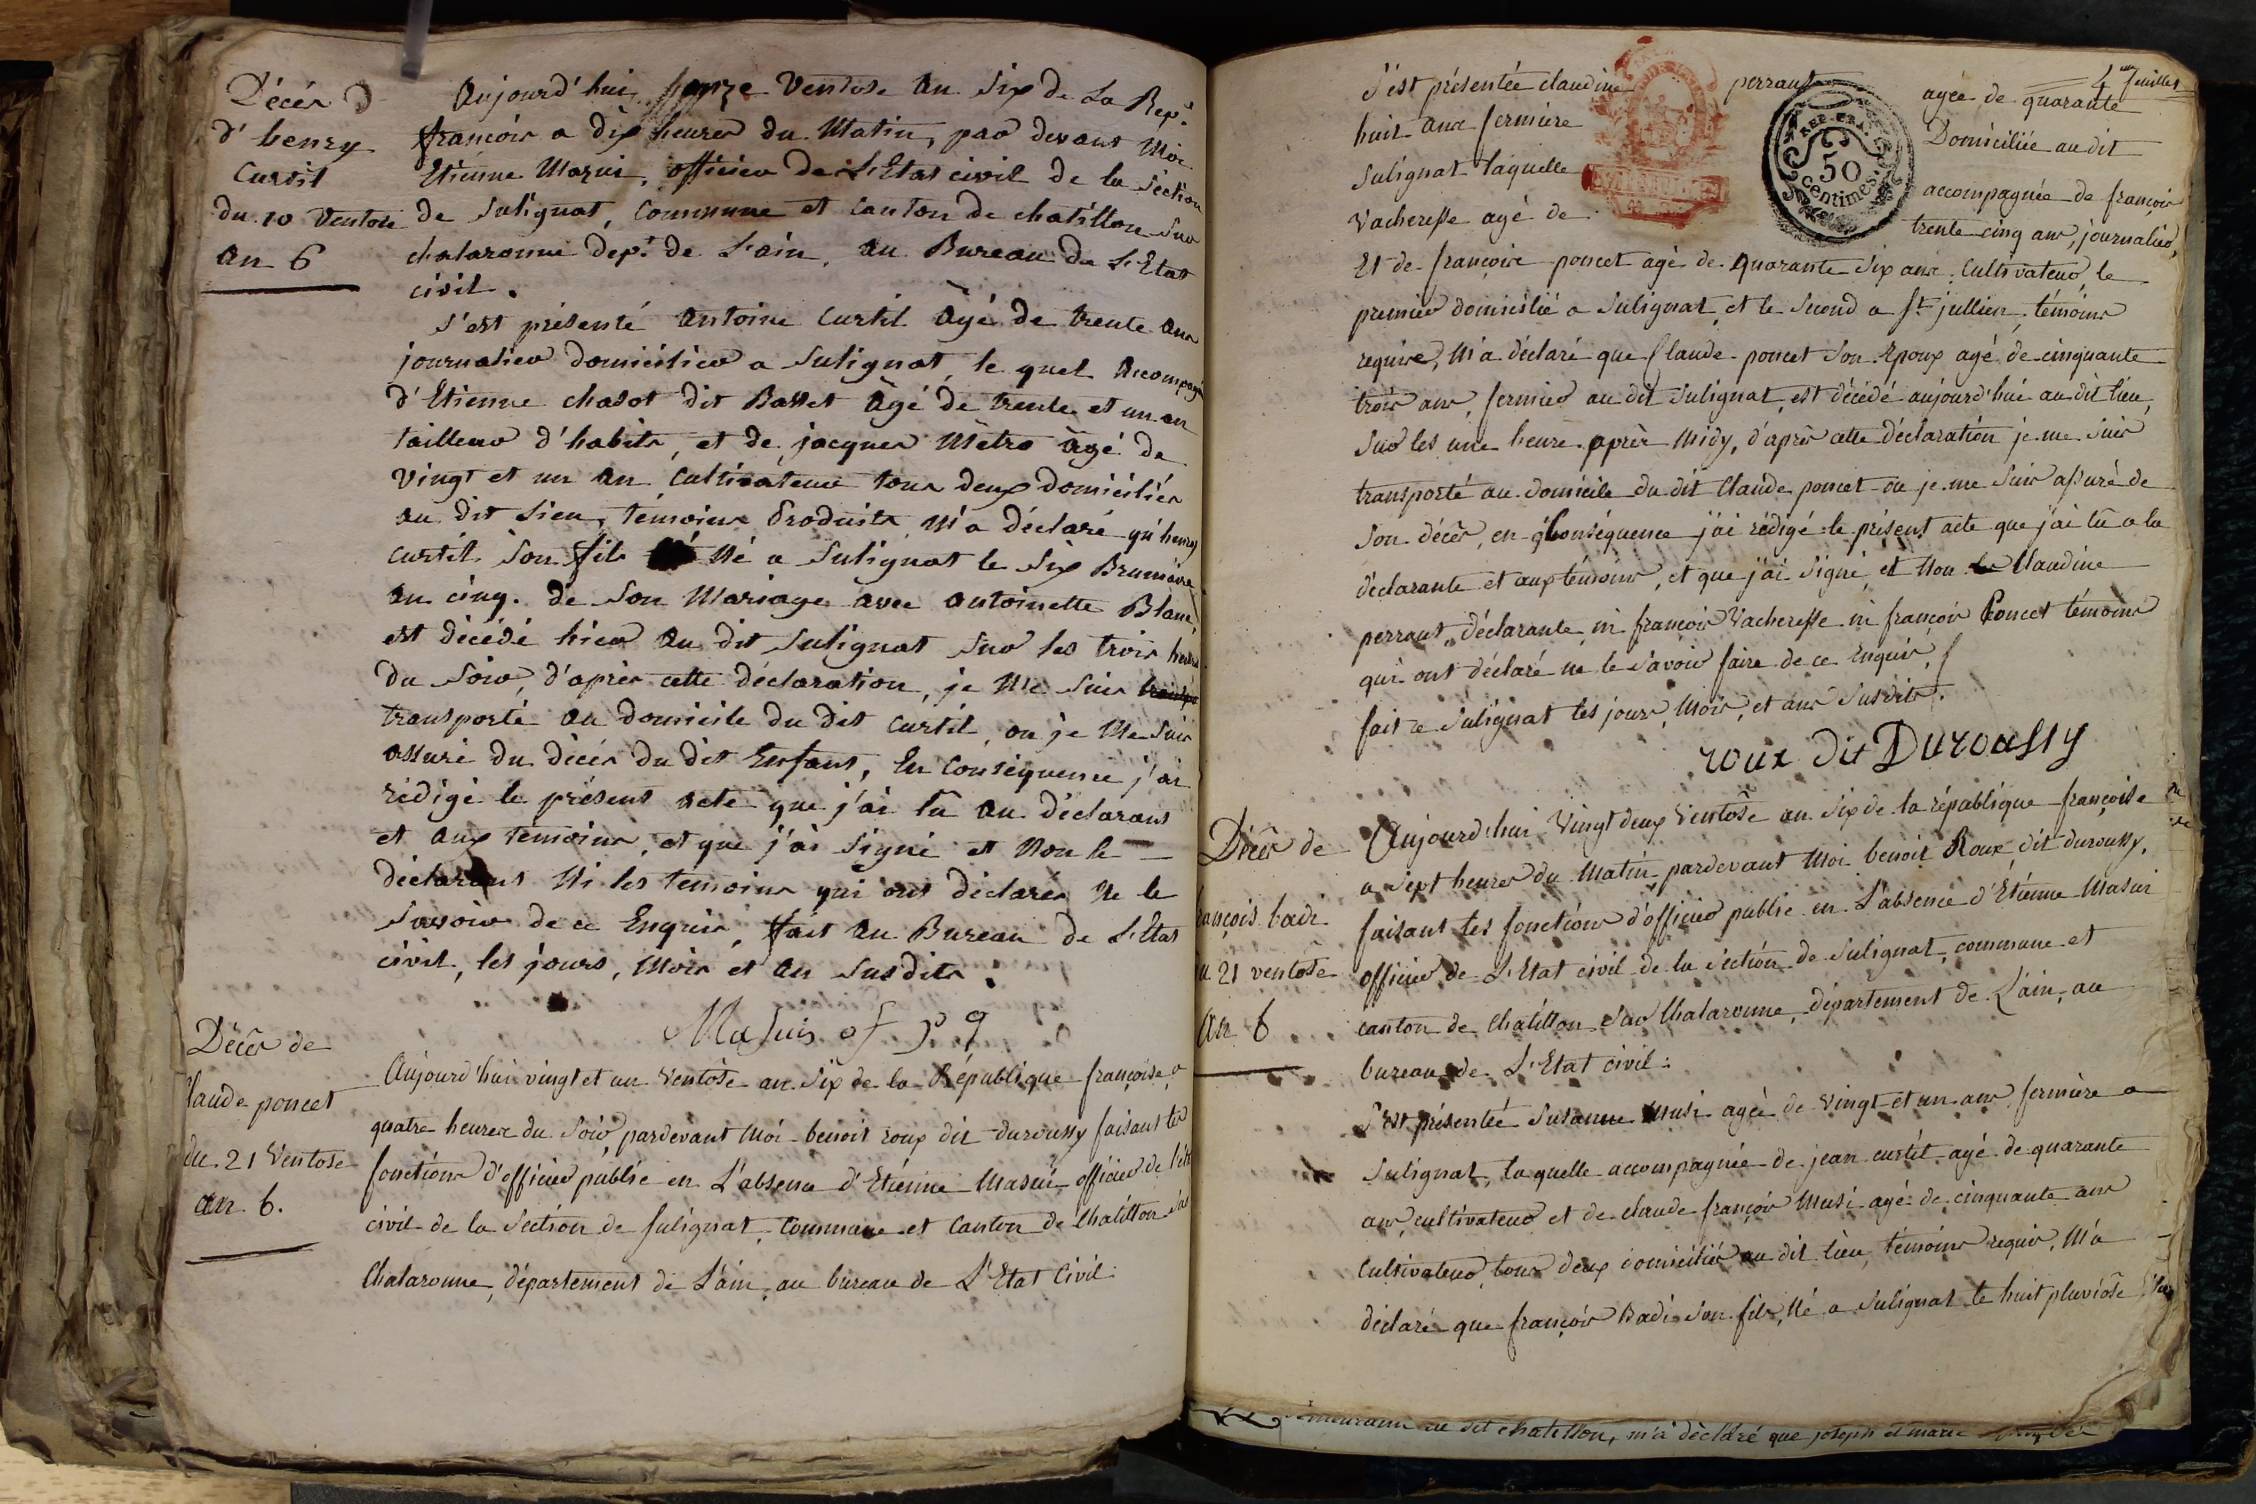 Décés
d'henry
Curtil
du 10 Ventose
an 6
Aujourd'hui onze Ventose an Six de La Rep.
françois a dix heures du Matin, par devant Moi
Etienne Masuis, officier de L'Etat civil de la Section
de Sulignat, Commune et Canton de chatillon Sur
chalaronne dép.t de L'ain, au Bureau de L'Etat
civil.
S'est présenté Antoine Curtil âgé de trente ans
journalier domicilier a Sulignat, le quel Accompagné
d'Etienne chasot dit Basset âgé de trente et un an
tailleur d'habits, et de jacques Mêtra âgé de
Vingt et un an Cultivateur tous deux domiciliés
au dit Lieu, temoins Produits M'a déclaré qu'henry
Curtil Son fils Né a Sulignat le Six Brumaire
an cinq. de Son Mariage avec Antoinette Blanc,
est décédé hier au dit Sulignat Sur les trois heures
du Soir, d'après cette déclaration, je Me Suis
transporté au domicile du dit Curtil, ou je Me Suis
assuré du décés du dit Enfant, En Conséquence j'ai
rédigé le présent acte que j'ai lû au déclarant
et aux temoins, et que j'ai Signé et Non le
déclarant Ni les temoins qui ont déclarés Ne le
Savoir de ce Enquis, fait au Bureau de L'Etat
civil, les jours, Mois et an Susdits.
Masuis of p g
Décês de
Claude poncet
du 21 Ventose
an 6.
Aujourd'hui vingt et un Ventôse an Six de la République françoise, a
quatre heures du Soir pardevant Moi benoit roux dit duroussy faisant les
fonctions d'officier public en L'absence d'Etienne Masuis officier de l'état
civil de la Section de Sulignat, Commune et Canton de Chatillon Sur
Chalaronne, département de L'ain, au bureau de L'Etat Civil.
4 feuillet
S'est présentée claudine perraut agée de quarante
huit ans fermière Domiciliée audit
Sulignat laquelle accompagnée de françois
Vacheresse agé de trente cinq ans, journalier,
50
centimes
REP. FRA.
Et de françois poncet agé de quarante Six ans Cultivateur, le
premier domicilié a Sulignat, et le Second a S.t jullien, témoins
requis, M'a déclaré que Claude poncet Son Epoux agé de cinquante
trois ans, fermier au dit Sulignat, est décédé aujourd'hui au dit lieu,
Sur les une heure après Midy, d'après cette déclaration je me Suis
transporté au domicile du dit Claude poncet ou je me Suis assuré de
Son décês, en Conséquence j'ai rédigé le présent acte que j'ai lû a la
déclarante et aux témoins, et que j'ai Signé et Non Claudine
perraut, déclarante ni françois Vacheresse ni françois Poncet témoins
qui ont déclaré ne le Savoir faire de ce Enquis,
fait a Sulignat les jours, Mois, et ans Susdits.
roux dit Duroussy
Décês de
françois badi
du 21 ventôse
an 6
Aujourd'hui Vingt deux Ventôse an Six de la république françoise
a Sept heures du Matin pardevant Moi benoit Roux dit duroussy,
faisant les fonctions d'officier public en L'absence d'Etienne Masuis
officier de L'Etat civil de la Section de Sulignat, commune et
canton de Chatillon Sur Chalaronne, département de L'ain, au
bureau de L'Etat civil:
S'est présentée Susanne Musi agée de vingt et un ans fermière a
Sulignat, la quelle accompagnée de jean curtil agé de quarante
ans, cultivateur et de claude françois Musi agé de cinquante ans
Cultivateur, tous deux domiciliés au dit lieu, témoins requis, M'a
déclaré que françois Badi Son fils, Né a Sulignat le huit pluviôse
au dit chatillon, m'a déclaré que joseph et marie